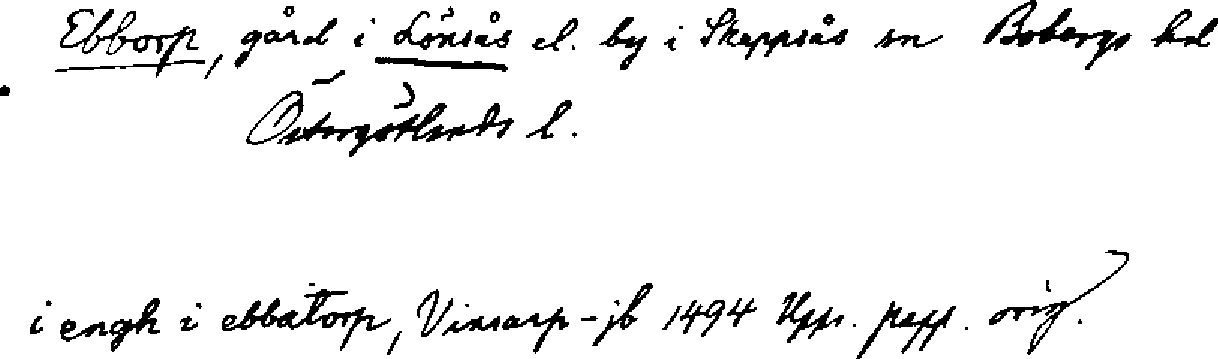 Ebborp, gård i Lönsås el. by i Skeppsås sn Bobergs hd
Östergötlands l.
i engh i ebbatorp, Vinsarp-jb 1494 Upps. papp. orig.